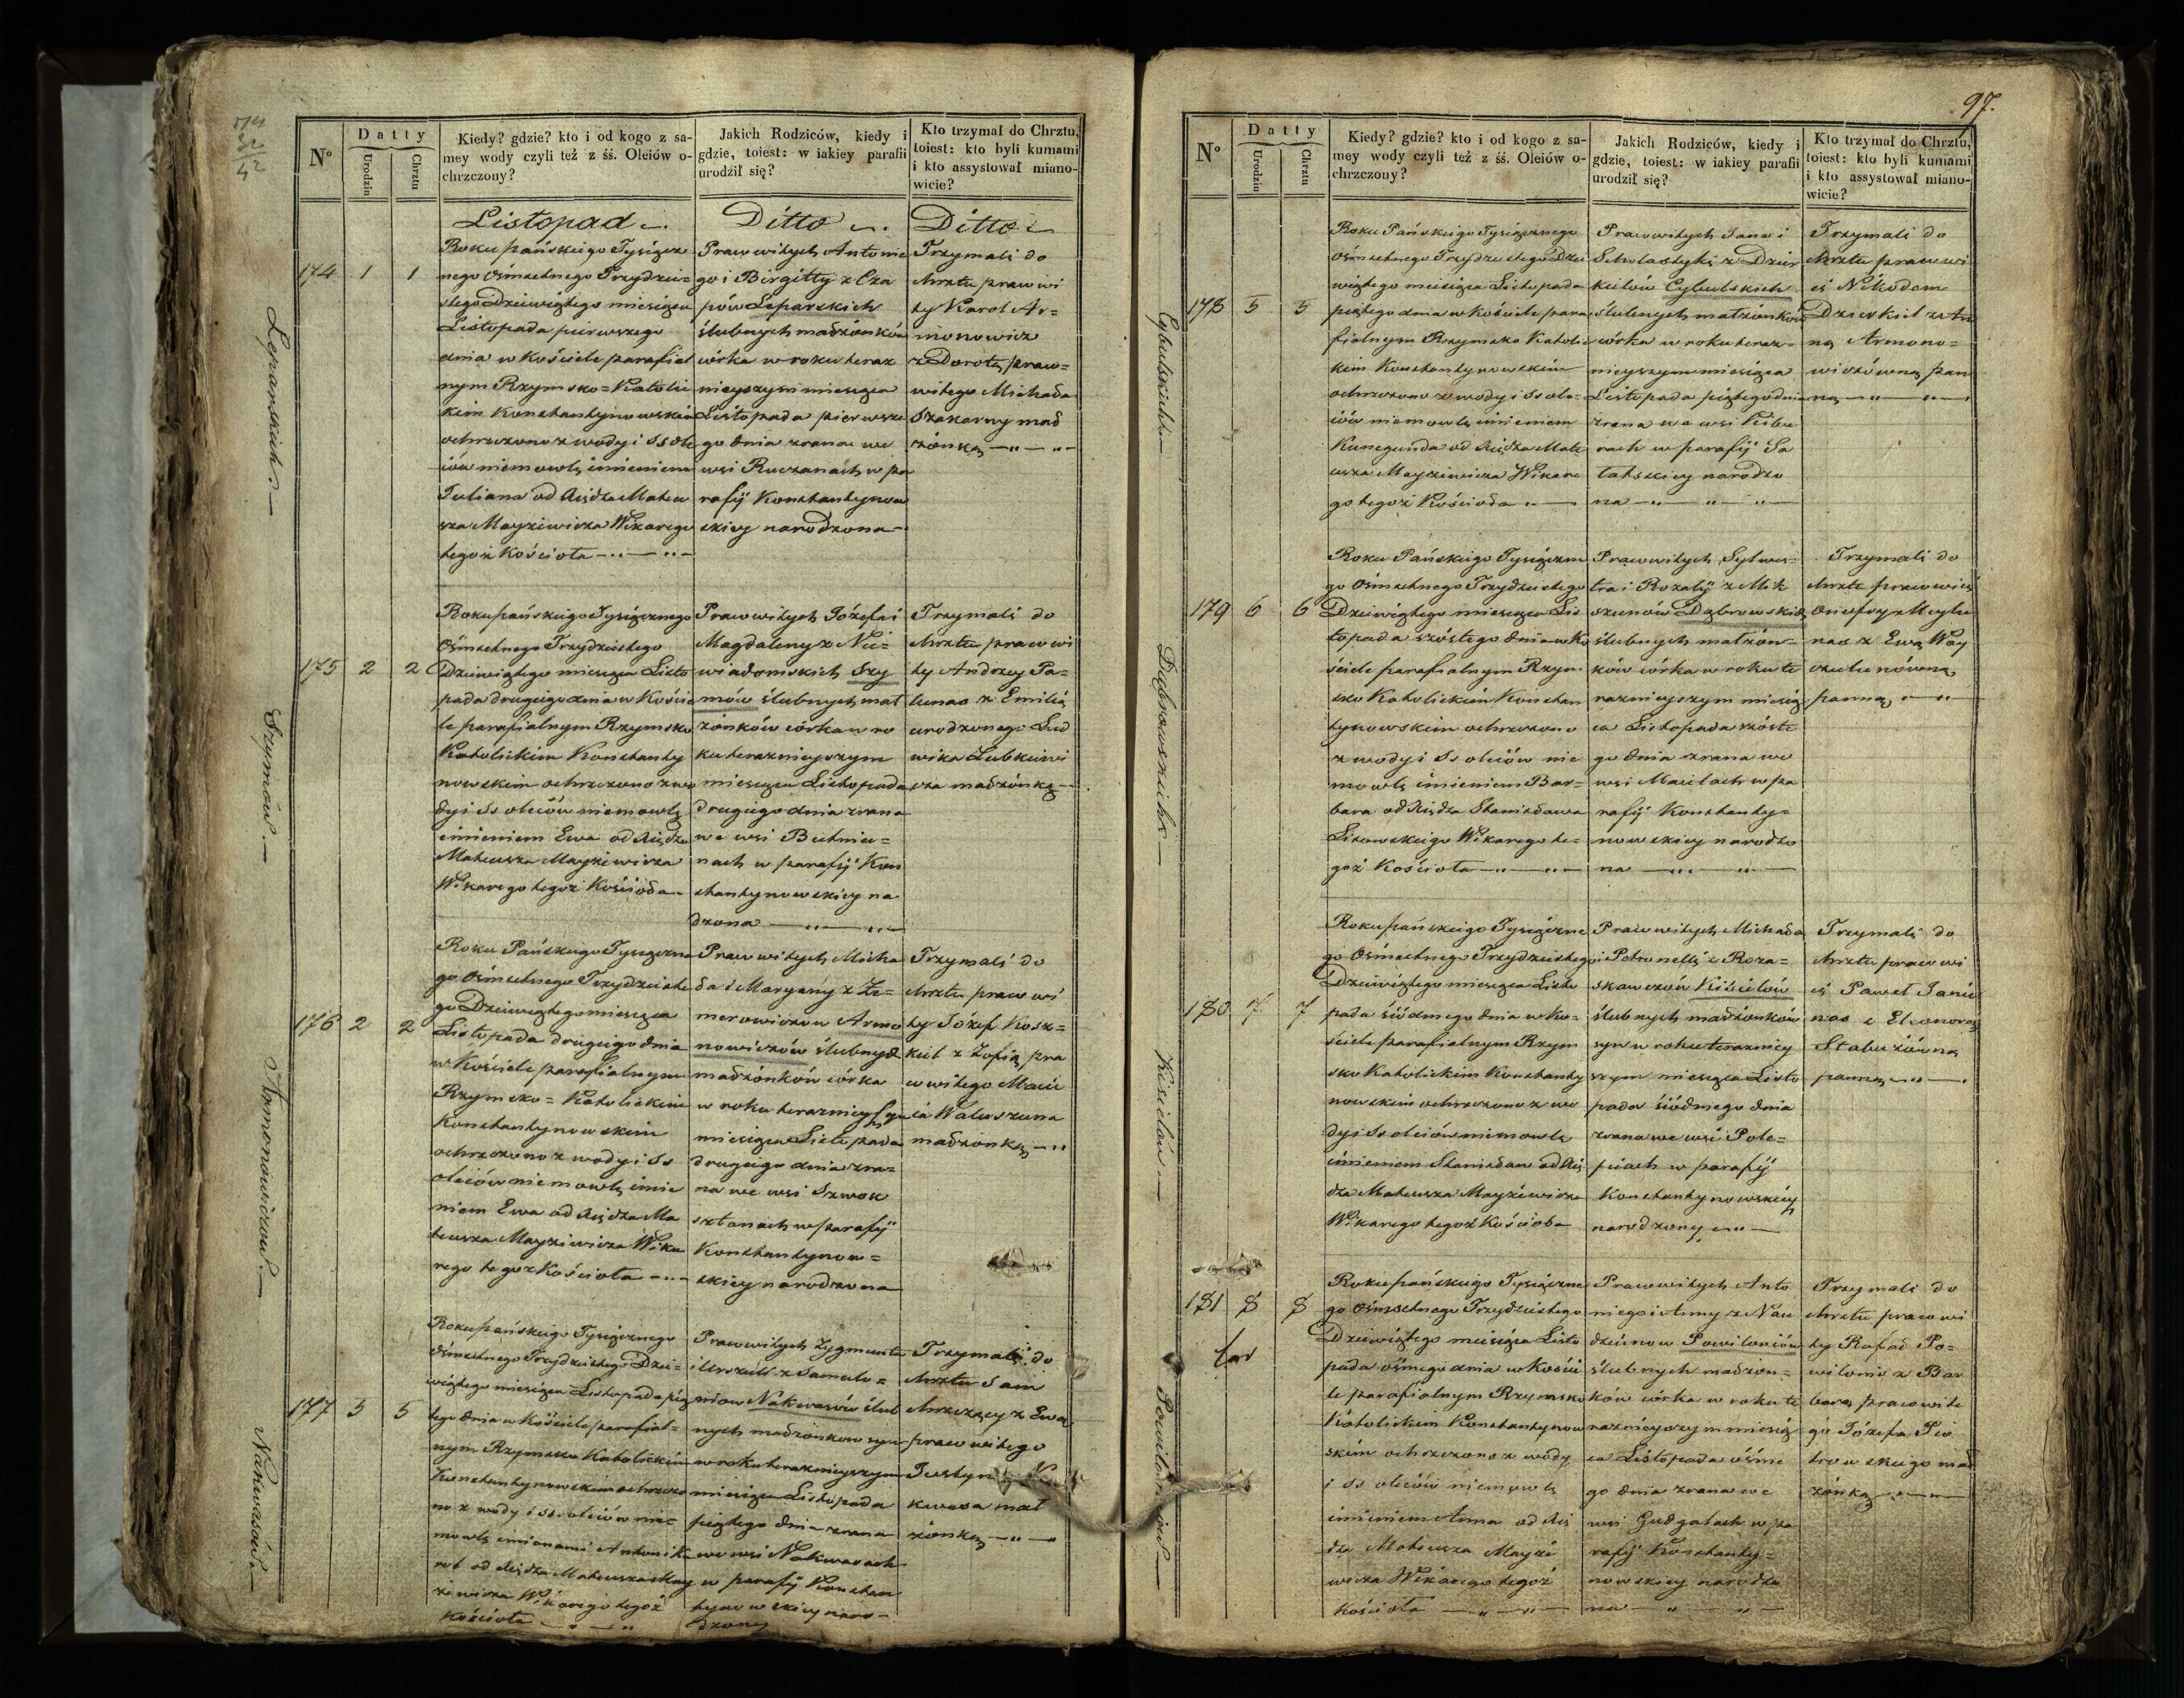 N°
Datty
Urodzin
Chrztu
Kiedy? gdzie? kto i od kogo z sa-
mey wody czyli też z śś. Oleiów o-
chrzczony?
Jakich Rodziców, kiedy i
gdzie, toiest: w iakiey parafii
urodził się?
Kto trzymał do Chrztu,
toiest: kto byli kumami
i kto assystował miano-
wicie?
Listopad
Ditto
Ditto
Leparskich
174 1 1
Roku pańskiego Tysiącz
nego Ośmsetnego Trzydzie-
stego Dziewiątego miesiąca
Listopada pierwszego
dnia w Kościele parafial
nym Rzymsko=Katolic
kim Konstantynowskim
ochrzczono z wody i SS ole
iów niemowlę imieniem
Juliana od Xiędza Mateu
sza Mayziewicza Wikarego
tegoż Kościoła
Prawowitych Antonie
go i Birgitty z Cza
pów Leparskich
ślubnych małżonków
córka w roku teraz
nieyszym miesiąca
Listopada pierwsze
go dnia zrana we
wsi Ruczanach w pa
rafij Konstantynow
skiey narodzona
Trzymali do
chrztu prawowi
ty Karol Ar=
monowicz
z Dorotą praw=
witego Michała
Szakarny mał
żonką
Szymów
175 2 2
Roku pańskiego Tysiącznego
Ośmsetnego Trzydziestego
Dziewiątego miesiąca Listo
pada drugiego dnia w Koście
le parafialnym Rzymsko
Katolickim Konstanty
nowskim ochrzczono z wo
dy i SS oleiów niemowlę
imieniem Ewa od Xiędza
Mateusza Mayziewicza
Wikarego tegoż Kościoła
Prawowitych Józefa i
Magdaleny z Nie=
wiadomskich Szy
mów ślubnych mał
żonków córka w ro
ku teraznieyszym
miesiąca Listopada
drugiego dnia zrana
we wsi Butmia=
nach w parafij Kon
stantynowskiey na
dzona
Trzymali do
chrztu prawowi
ty Andrzey Pa=
lunas z Emilią
urodzonego Lud
wika Lubkiewi
cza małżonką
Armonowiczów
176 2 2
Roku Pańskiego Tysiączne
go Ośmsetnego Trzydzieste
go Dziewiątego miesiąca
Listopada drugiego dnia
w Kościele parafialnym
Rzymsko=Katolickim
Konstantynowskim
ochrzczono z wody i SS
oleiów niemowlę imie
niem Ewa od Xiędza Ma
teusza Mayziewicza Wika
rego tegoż Kościoła
Prawowitych Micha
ła i Maryany z Że=
merowiczow Armo
nowiczów ślubnych
małżonków córka
w roku teraznieyszym
miesiąca Listopada
drugiego dnia zra=
na we wsi Szwok
sztanach w parafij
Konstantynow=
skiey narodzona
Trzymali do
chrztu prawowi
ty Józef Kosz=
kiel z Zofią pra
wowitego Macie
ia Waluszuna
małżonką
Nakwasów
177 5 5
Roku pańskiego Tysiącznego
Ośmsetnego Trzydziestego Dzie=
wiątego miesiąca Listopada pią
tego dnia w Kościele parafial=
nym Rzymsko Katolickim
Konstantynowskim ochrzczo
no z wody i SS oleiów nie=
mowlę imionami Antoni K
rol od Xiędza Mateusza May
ziewicza Wikarego tegoż
Kościoła
Prawowitych Zygmunta
i Urszuli z Samulo=
niow Nakwasów ślub
nych małżonkow syn
w roku teraznieyszym
miesiąca Listopada
piątego dnia zrana
we wsi Nakwasach
w parafij Konstan
tynowskiey naro=
dzony
Trzymali do
chrztu Sam
chrzczący z Ewą
prawowitego
Justyn Na
kwasa mał
żonką
97.
N°
Datty
Urodzin
Chrztu
Kiedy? gdzie? kto i od kogo z sa-
mey wody czyli też z śś. Oleiów o-
chrzczony?
Jakich Rodziców, kiedy i
gdzie, toiest: w iakiey parafii
urodził się?
Kto trzymał do Chrztu,
toiest: kto byli kumami
i kto assystował miano-
wicie?
Cybulskich
178 5 5
Roku Pańskiego Tysiącznego
Ośmsetnego Trzydziestego Dzie
wiątego miesiąca Listopada
piątego dnia w Kościele para
fialnym Rzymsko Katolic
kim Konstantynowskim
ochrzczono z wody i SS ole=
iów niemowlę imieniem
Kunegunda od Xiędza Mate
usza Mayziewicza Wikare
go tegoż Kościoła
Prawowitych Jana i
Scholastyki z Dzier
kielów Cybulskich
ślubnych małżonków
córka w roku teraz=
nieyszym miesiąca
Listopada piątego dnia
zrana we wsi Peibu
rach w parafij Sa
łatskiey narodzo
na
Trzymali do
chrztu prawowi
ci Nikodem
Dzierkiel z An
ną Armono=
wiczówną pan
ną
Dąbrowskich
179 6 6
Roku Pańskiego Tysiączne
go Ośmsetnego Trzydziestego
Dziewiątego miesiąca Lis
topada szóstego dnia w Ko
ściele parafialnym Rzym=
sko Katolickim Konstan
tynowskim ochrzczono
z wody i SS oleiów nie
mowlę imieniem Bar=
bara od Xiędza Stanisława
Lisowskiego Wikarego te=
goż Kościoła
Prawowitych Sylwes=
tra i Rozalij z Mik
szunów Dąbrowskich
ślubnych małżon=
ków córka w roku te
raznieyszym miesią
ca Listopada szóste
go dnia zrana we
wsi Maculach w pa
rafij Konstanty=
nowskiey narodzo
na
Trzymali do
chrztu prawowici
Onufry Meylu
nas z Ewą Woy
czulunówną
panną
Kisielów
180 7 7
Roku pańskiego Tysiączne
go Ośmsetnego Trzydziestego
Dziewiątego miesiąca Listo
pada siódmego dnia w Ko=
ściele parafialnym Rzym
sko Katolickim Konstanty
nowskim ochrzczono z wo
dy i SS oleiów niemowlę
imieniem Stanisław od Xię
dza Mateusza Mayziewicza
Wikarego tegoż Kościoła
Prawowitych Michała
i Petroneli z Roza=
skawczów Kisielów
ślubnych małżonków
syn w roku terazniey
szym miesiąca Listo
pada siódmego dnia
zrana we wsi Pole=
piach w parafij
Konstantynowskiey
narodzony
Trzymali do
chrztu prawowi
ci Paweł Janie
nas z Elconorą
Stabużówną
panną
Powiłoniów
181 8 8
Roku pańskiego Tysiączne
go Ośmsetnego Trzydziestego
Dziewiątego miesiąca Listo
pada ósmego dnia w Koście
le parafialnym Rzymsko
Katolickim Konstantynow
skim ochrzczono z wody
i SS oleiów niemowlę
imieniem Anna od Xię
dza Mateusza Mayzie
wicza Wikarego tegoż
Kościoła
Prawowitych Anto
niego i Anny z Nau
dziunow Powiłoniów
ślubnych małżon=
ków córka w roku te
raznieyszym miesią
ca Listopada ósme
go dnia zrana we
wsi Gudgałach w pa
rafij Konstanty=
nowskiey narodzo
na
Trzymali do
chrztu prawowi
ty Rafał Po=
wiłonis z Bar
barą prawowite
go Józefa Pio
trowskiego mał
żonką